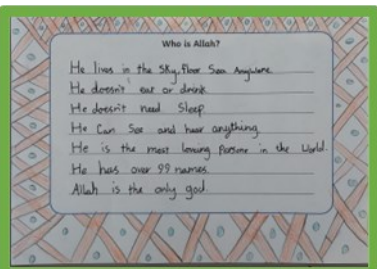 Who is Allah?
He lives in the Sky, floor Sea Anywhere.
He doesn't eat or drink
He doesn't need Sleep.
He Can See and hear anything
He is the most loveing Persone in the World.
He has over 99 names.
Allah is the only god.